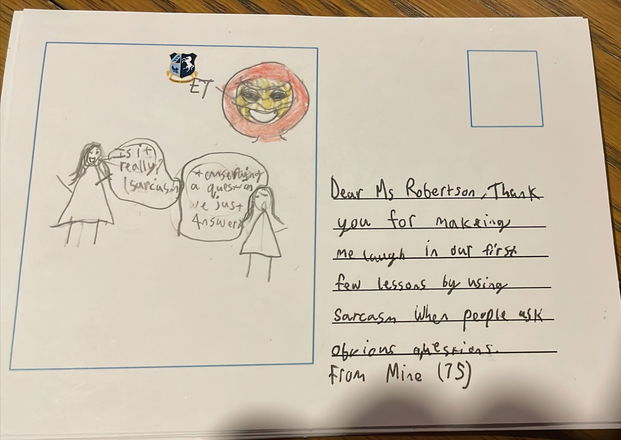 ET
is it
really?
(sarcasm)
*answering
a question
we just
Answered
Dear Ms Robertson, Thank
you for makeing
me laugh in our first
few lessons by using
Sarcasm When people ask
obvious questions.
From Mine (7S)